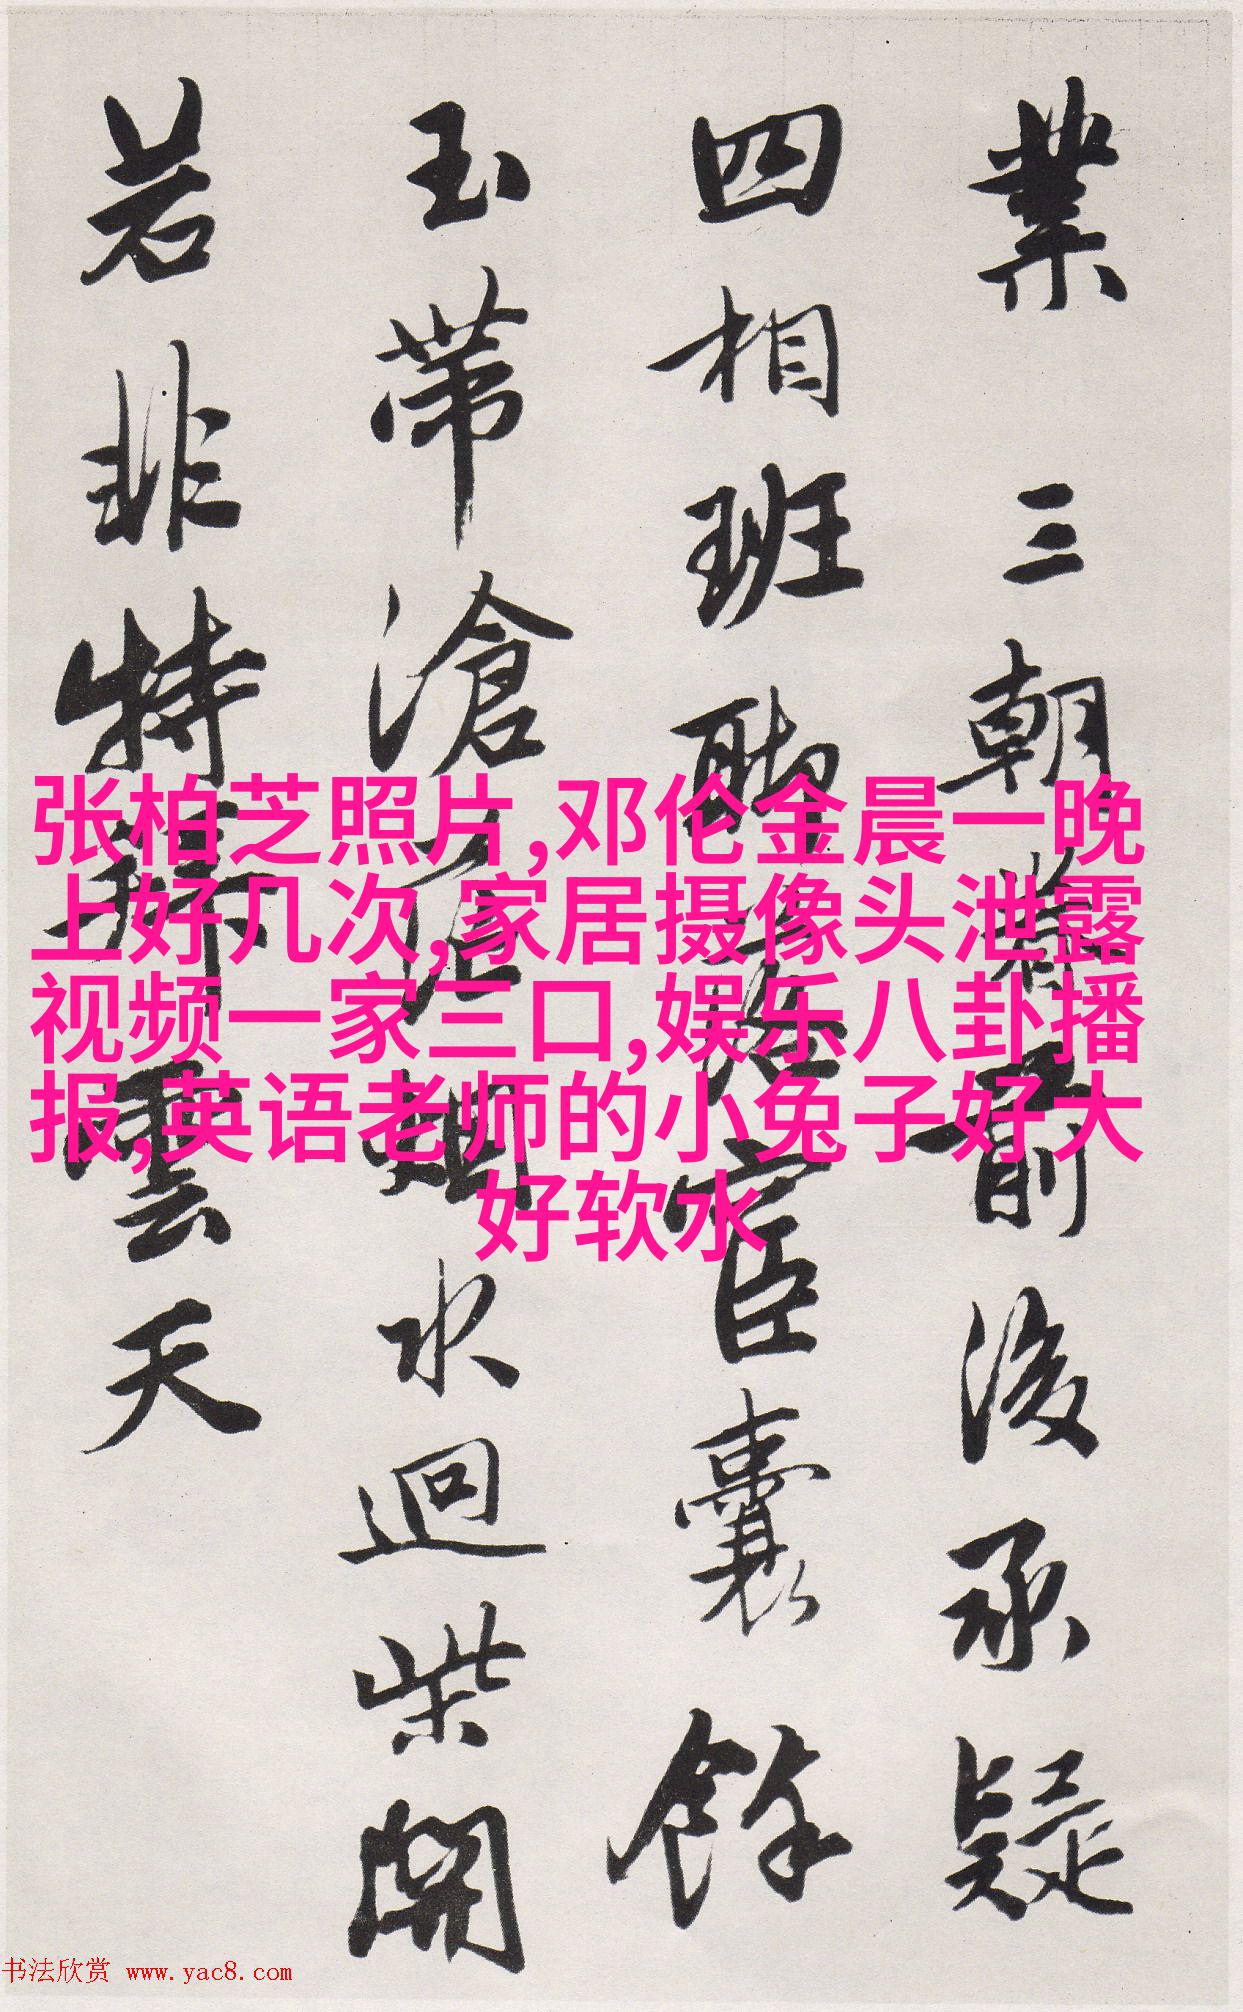 業 三朝蓍蔡前後承疑
四相班聯舊臣囊餘
玉帶滄江烟水迥柴開
若非特拜雲天
张柏芝照片,邓伦金晨一晚
上好几次,家居摄像头泄露
视频一家三口,娱乐八卦播
报,英语老师的小兔子好大
好软水
书法欣赏 www.yac8.com